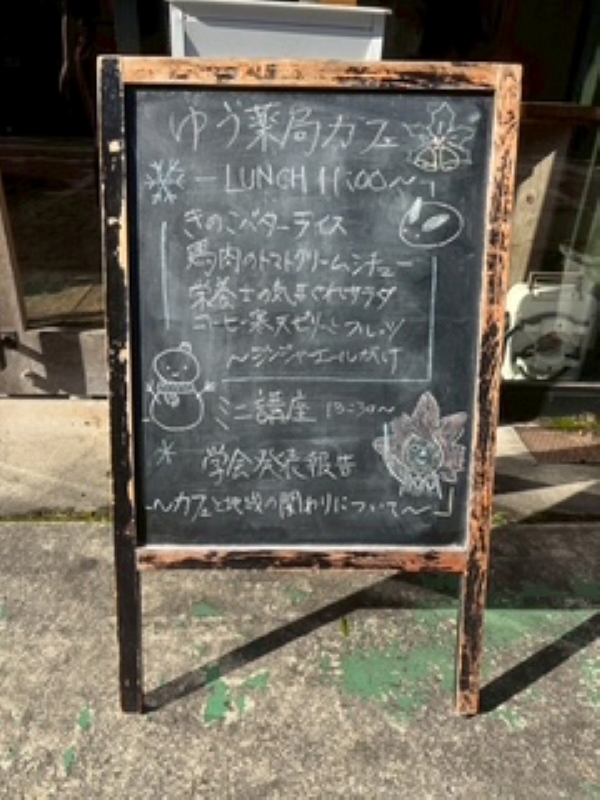 ゆう薬局カフェ
ー LUNCH 11:00〜
きのこバターライス
馬肉のトマトクリームシチュー
栄養士の気まぐれサラダ
コーヒー寒天ゼリーとフルーツ
〜ジンジャーエールがけ
ミニ講座 13:30〜
学会発表報告
〜カフェと地域の関わりについて〜